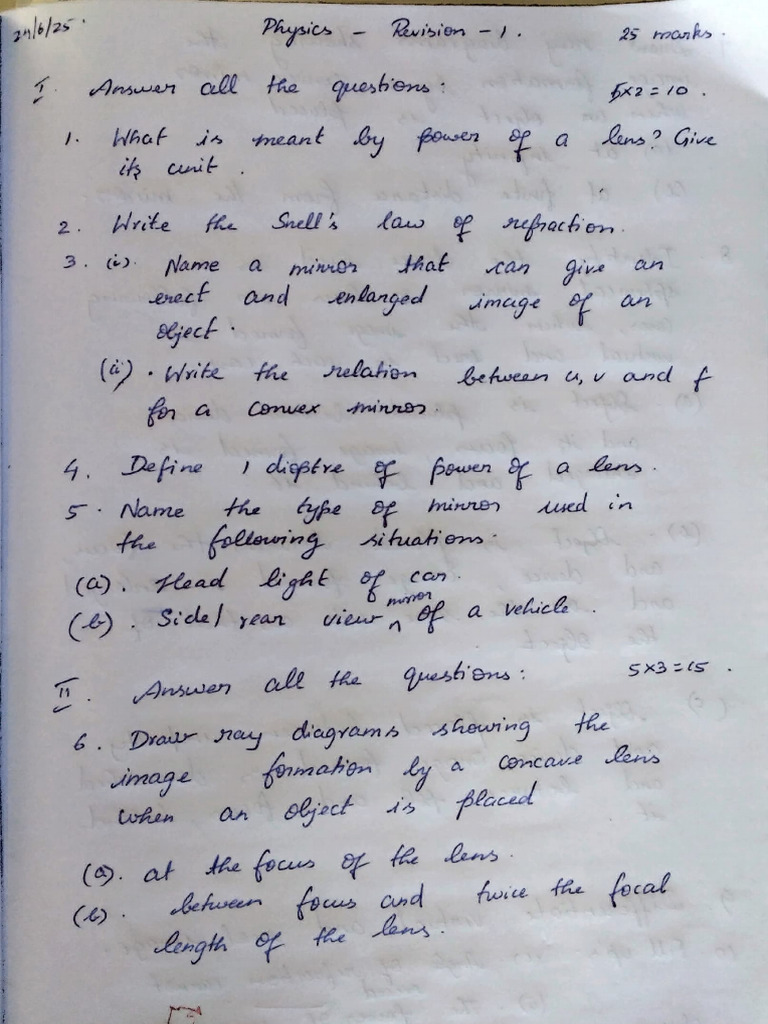 24/6/25. Physics - Revision - 1. 25 marks.
I. Answer all the questions: 5x2=10.
1. What is meant by power of a lens? Give
its unit.
2. Write the Snell's law of refraction.
3. (i). Name a mirror that can give an
erect and enlarged image of an
object.
(ii). Write the relation between u, v and f
for a convex mirror.
4. Define 1 dioptre of power of a lens.
5. Name the type of mirror used in
the following situations.
(a). Head light of car.
(b). Side/rear view mirror of a vehicle.
II. Answer all the questions: 5x3=15.
6. Draw ray diagrams showing the
image formation by a concave lens
when an object is placed
(a). at the focus of the lens.
(b). between focus and twice the focal
length of the lens.